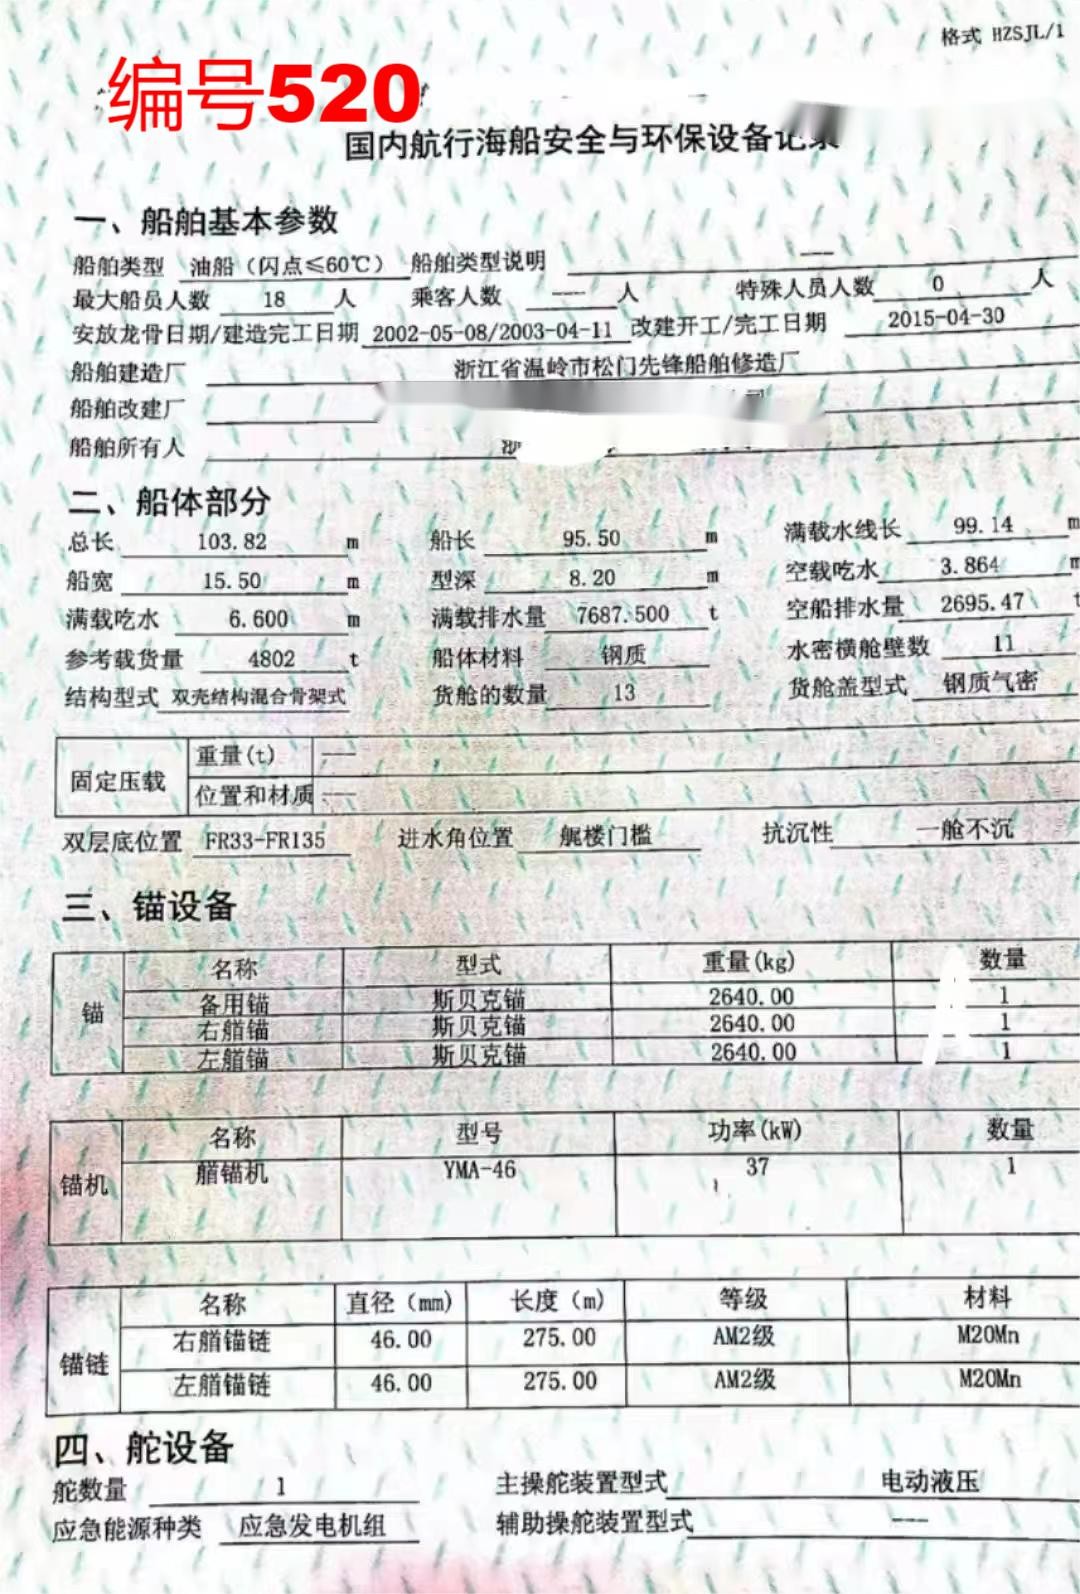 格式 HZSJL/1
编号520
国内航行海船安全与环保设备记录
一、船舶基本参数
船舶类型 油船（闪点≤60℃） 船舶类型说明 ---
最大船员人数 18 人 乘客人数 --- 人 特殊人员人数 0 人
安放龙骨日期/建造完工日期 2002-05-08/2003-04-11 改建开工/完工日期 2015-04-30
船舶建造厂 浙江省温岭市松门先锋船舶修造厂
船舶改建厂
船舶所有人 浙
二、船体部分
总长 103.82 m 船长 95.50 m 满载水线长 99.14 m
船宽 15.50 m 型深 8.20 m 空载吃水 3.864 m
满载吃水 6.600 m 满载排水量 7687.500 t 空船排水量 2695.47 t
参考载货量 4802 t 船体材料 钢质 水密横舱壁数 11
结构型式 双壳结构混合骨架式 货舱的数量 13 货舱盖型式 钢质气密
固定压载 重量(t) ---
位置和材质 ---
双层底位置 FR33-FR135 进水角位置 艉楼门槛 抗沉性 一舱不沉
三、锚设备
锚 名称 型式 重量(kg) 数量
备用锚 斯贝克锚 2640.00 1
右艏锚 斯贝克锚 2640.00 1
左艏锚 斯贝克锚 2640.00 1
锚机 名称 型号 功率(kW) 数量
艏锚机 YMA-46 37 1
锚链 名称 直径（mm） 长度（m） 等级 材料
右艏锚链 46.00 275.00 AM2级 M20Mn
左艏锚链 46.00 275.00 AM2级 M20Mn
四、舵设备
舵数量 1 主操舵装置型式 电动液压
应急能源种类 应急发电机组 辅助操舵装置型式 ---